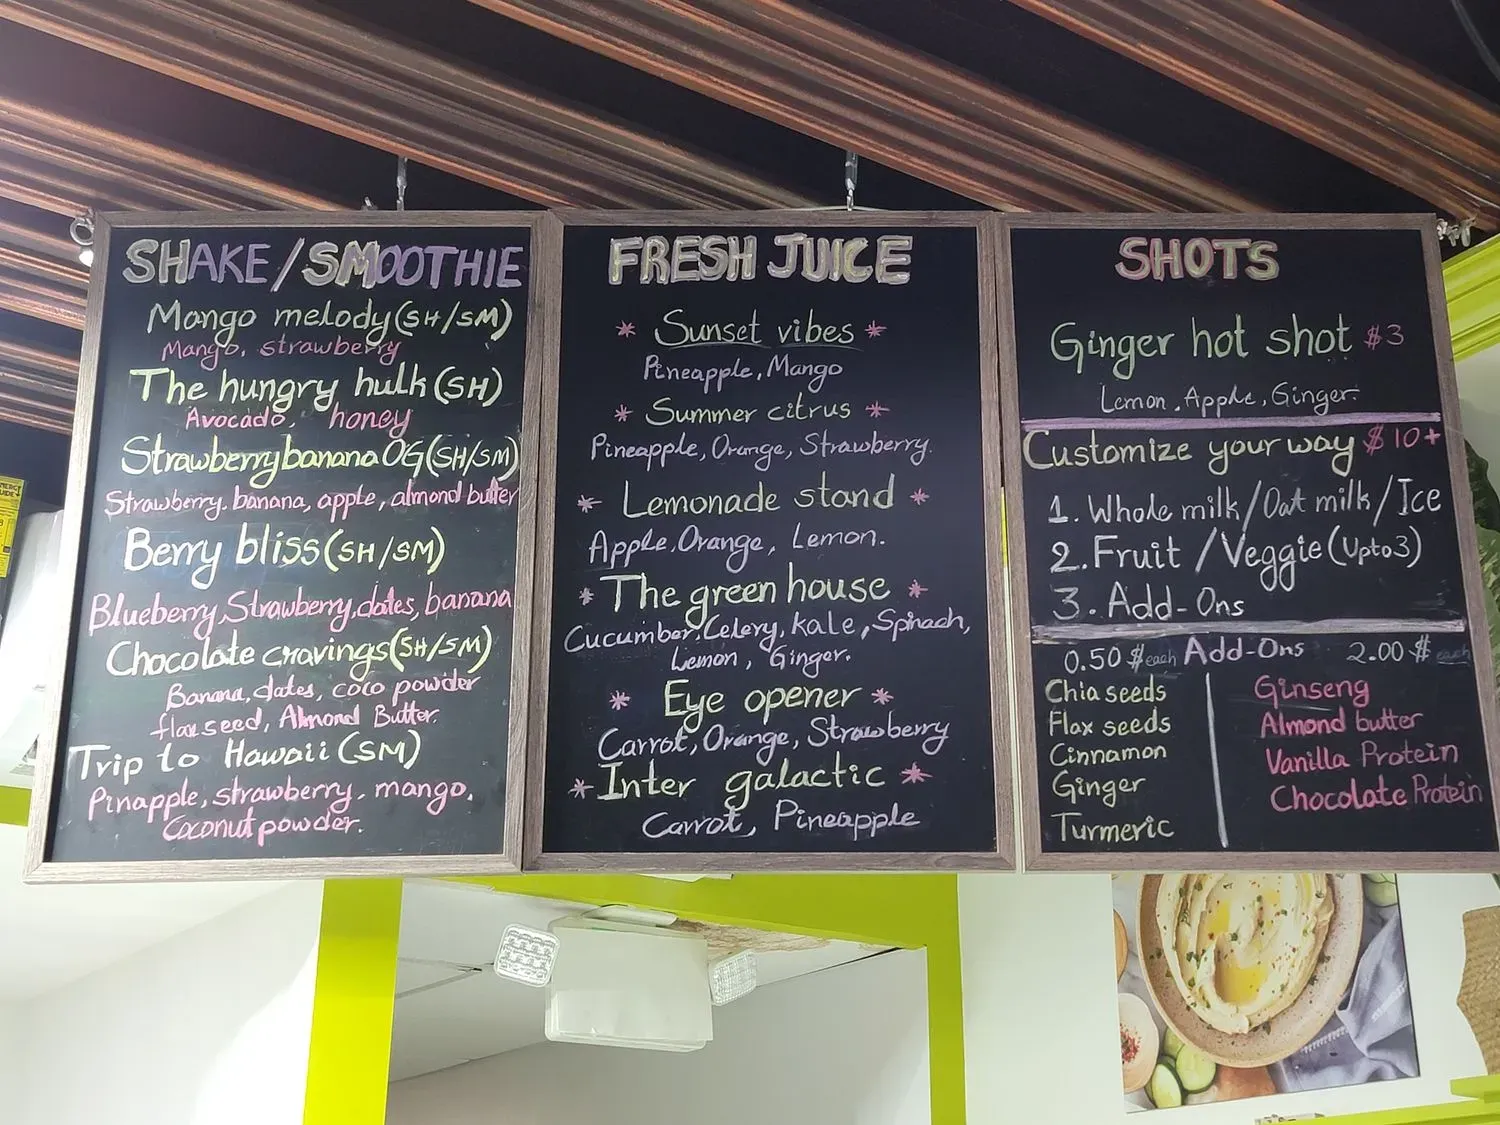 SHAKE/SMOOTHIE
Mango melody(SH/SM)
Mango, strawberry
The hungry hulk(SH)
Avocado, honey
Strawberry banana OG(SH/SM)
Strawberry, banana, apple, almond butter
Berry bliss(SH/SM)
Blueberry, Strawberry, dates, banana
Chocolate cravings(SH/SM)
Banana, dates, coco powder
flaxseed, Almond Butter.
Trip to Hawaii(SM)
Pinapple, strawberry, mango,
Coconut powder.
FRESH JUICE
* Sunset vibes *
Pineapple, Mango
* Summer citrus *
Pineapple, Orange, Strawberry.
* Lemonade stand *
Apple, Orange, Lemon.
* The green house *
Cucumber, Celery, kale, Spinach,
Lemon, Ginger.
* Eye opener *
Carrot, Orange, Strawberry
* Inter galactic *
Carrot, Pineapple
SHOTS
Ginger hot shot $3
Lemon, Apple, Ginger.
Customize your way $10+
1. Whole milk/Oat milk/Ice
2. Fruit/Veggie(Upto3)
3. Add-Ons
0.50 $ each Add-Ons 2.00 $ each
Chia seeds
Flax seeds
Cinnamon
Ginger
Turmeric
Ginseng
Almond butter
Vanilla Protein
Chocolate Protein